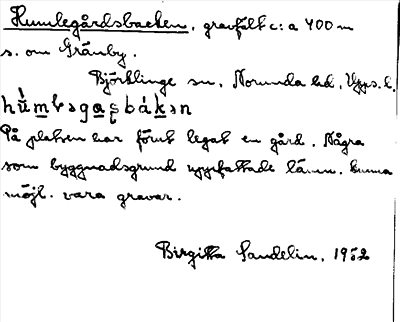 Humlegårdsbacken, gravfält c:a 400 m
s. om Gränby.
Björklinge sn, Norunda hd, Upps. l.
På platsen har förut legat en gård. Några
som byggnadsgrund uppfattade lämn. kunna
möjl. vara gravar.
Birgitta Sandelin, 1952